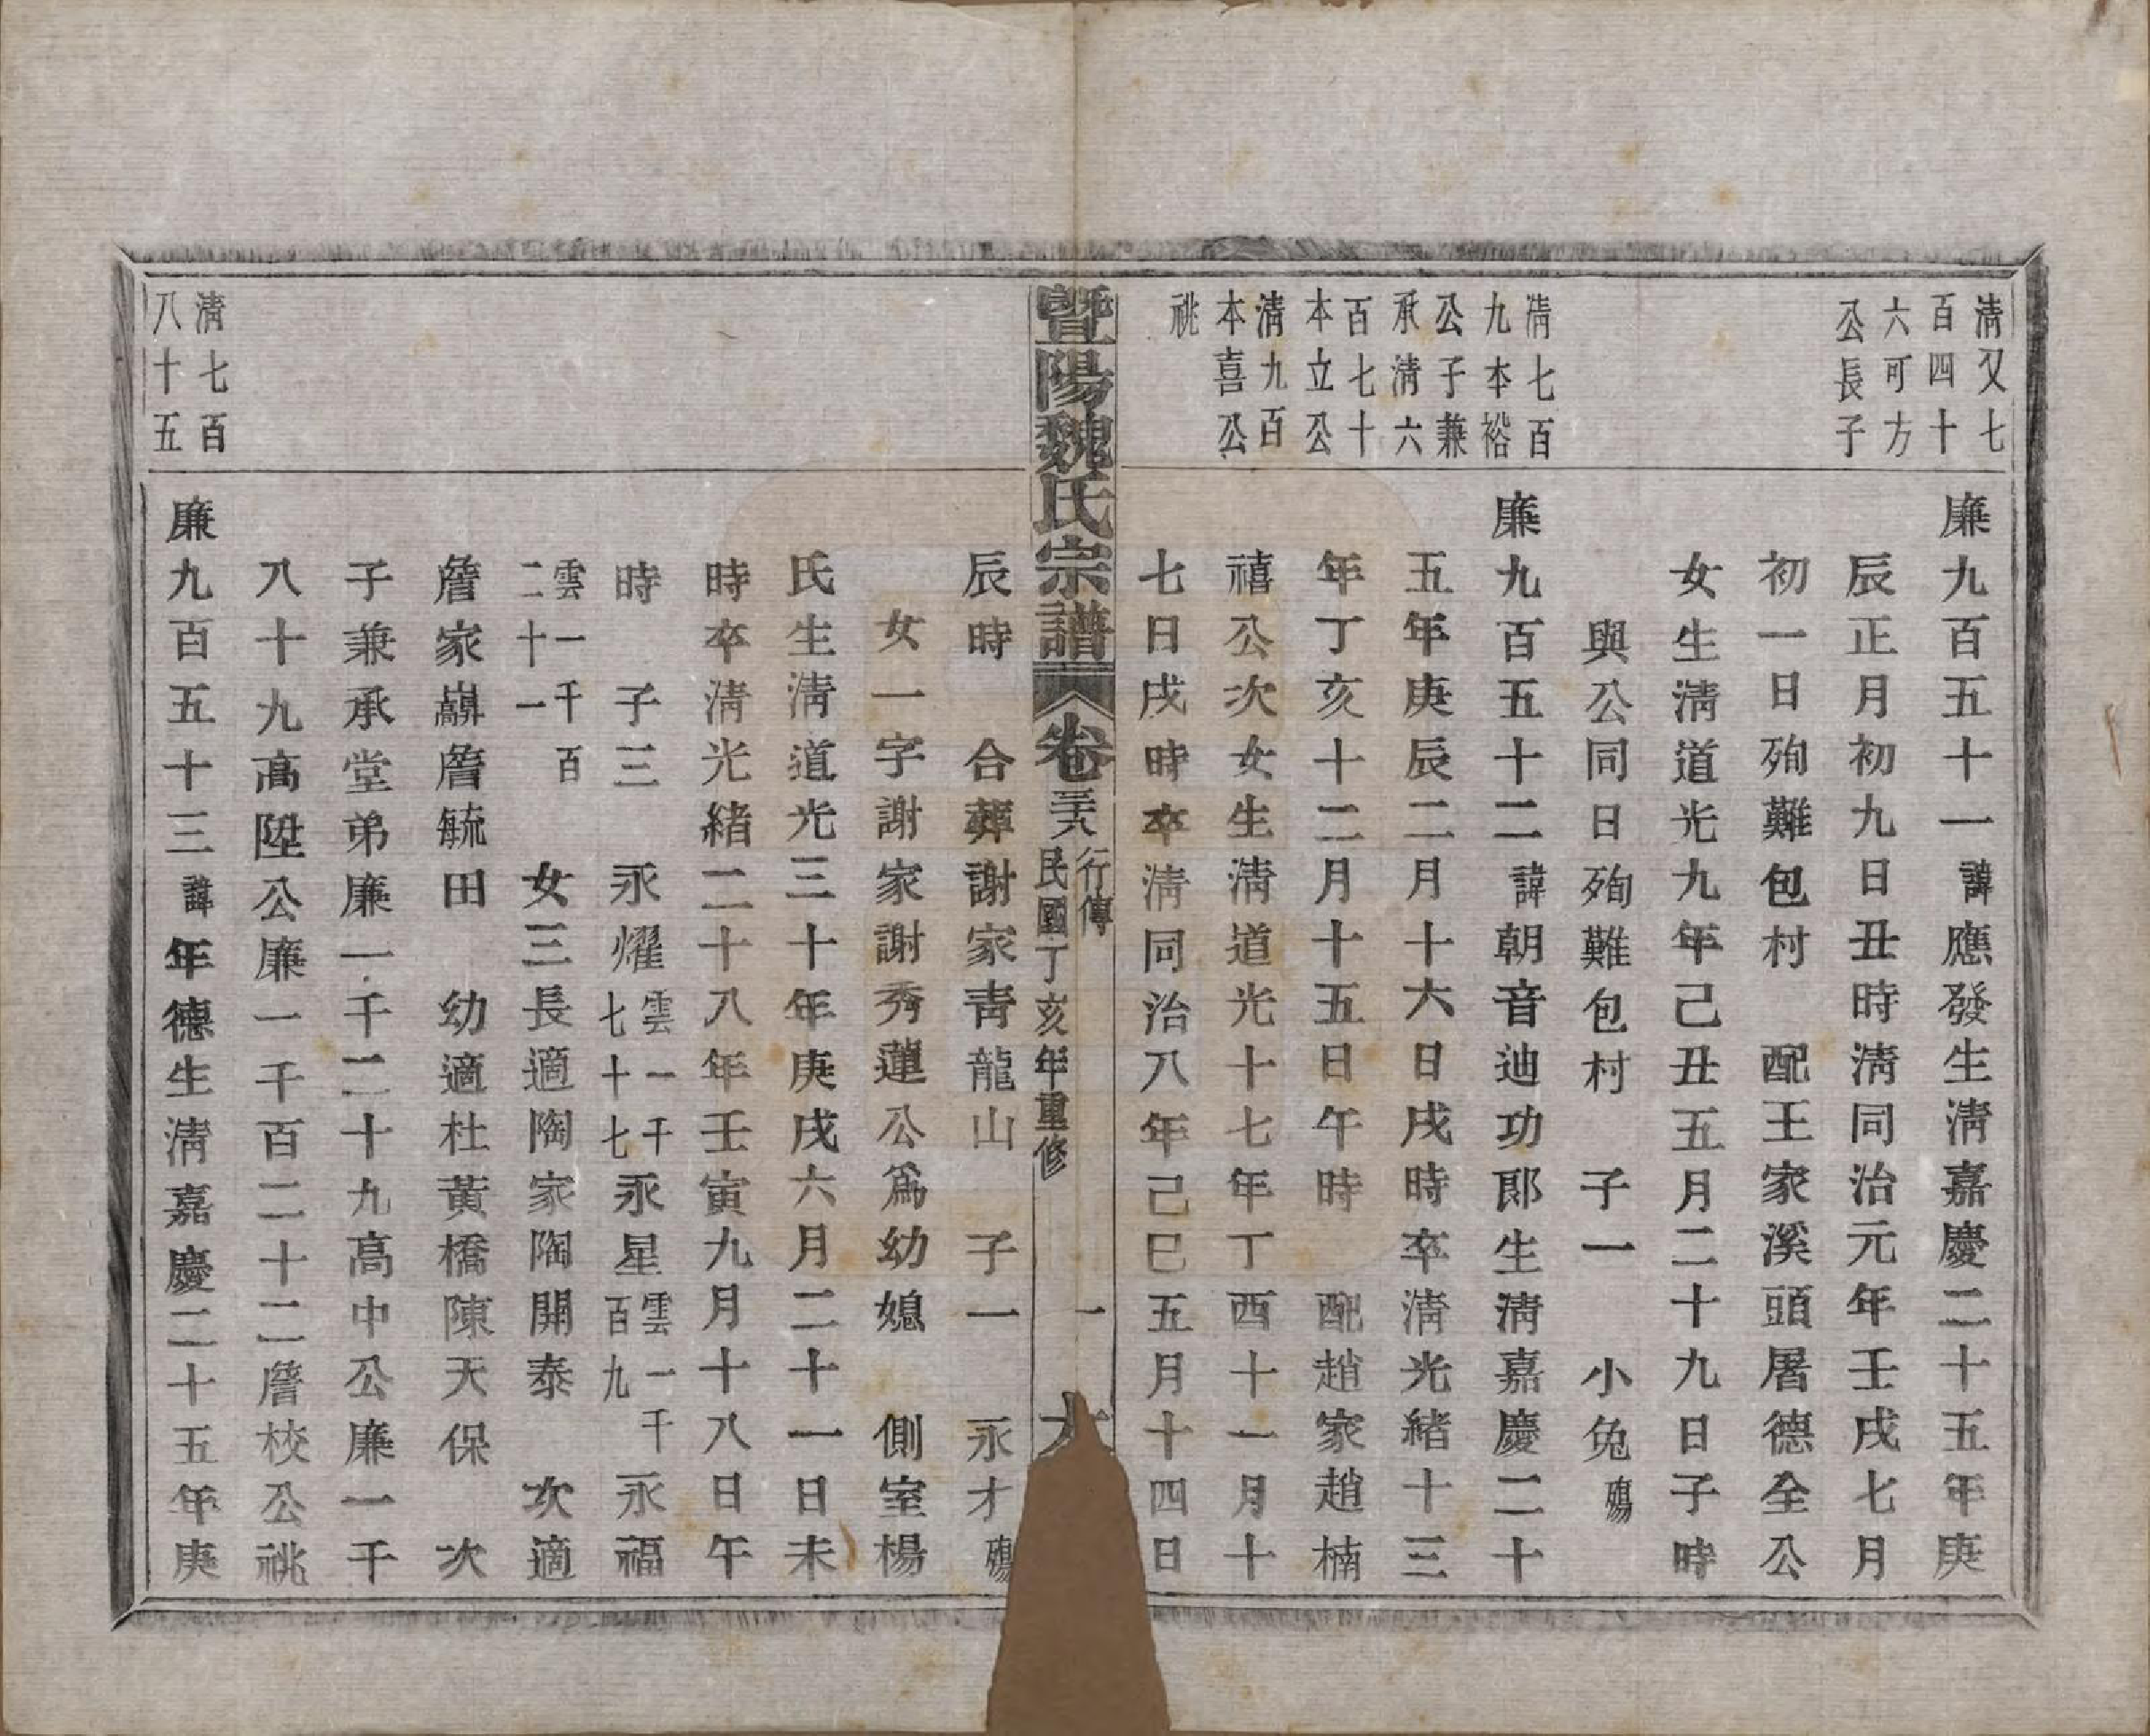 清又七
百四十
六可方
公長子
廉九百五十一諱應發生淸嘉慶二十五年庚
辰正月初九日丑時淸同治元年壬戌七月
初一日殉難包村　配王家溪頭屠德全公
女生淸道光九年己丑五月二十九日子時
與公同日殉難包村　子一　小兔殤
清七百
九本裕
公子兼
承清六
百七十
本立公
清九百
本喜公
祧
廉九百五十二諱朝音迪功郎生淸嘉慶二十
五年庚辰二月十六日戌時卒淸光緒十三
年丁亥十二月十五日午時　配趙家趙楠
禧公次女生淸道光十七年丁酉十一月十
七日戌時卒淸同治八年己巳五月十四日
暨陽魏氏宗譜
卷三六
行傳
民國丁亥年重修
一
辰時　合葬謝家靑龍山　子一　永才殤
女一字謝家謝秀蓮公爲幼媳　側室楊
氏生淸道光三十年庚戌六月二十一日未
時卒淸光緒二十八年壬寅九月十八日午
時　子三　永燿雲一千七十七永星雲一千百九永福
雲一千百二十一　女三長適陶家陶開泰　次適
詹家巐詹毓田　幼適杜黃橋陳天保　次
子兼承堂弟廉一千二十九高中公廉一千
八十九高陞公廉一千百二十二詹校公祧
清七百
八十五
廉九百五十三諱年德生淸嘉慶二十五年庚